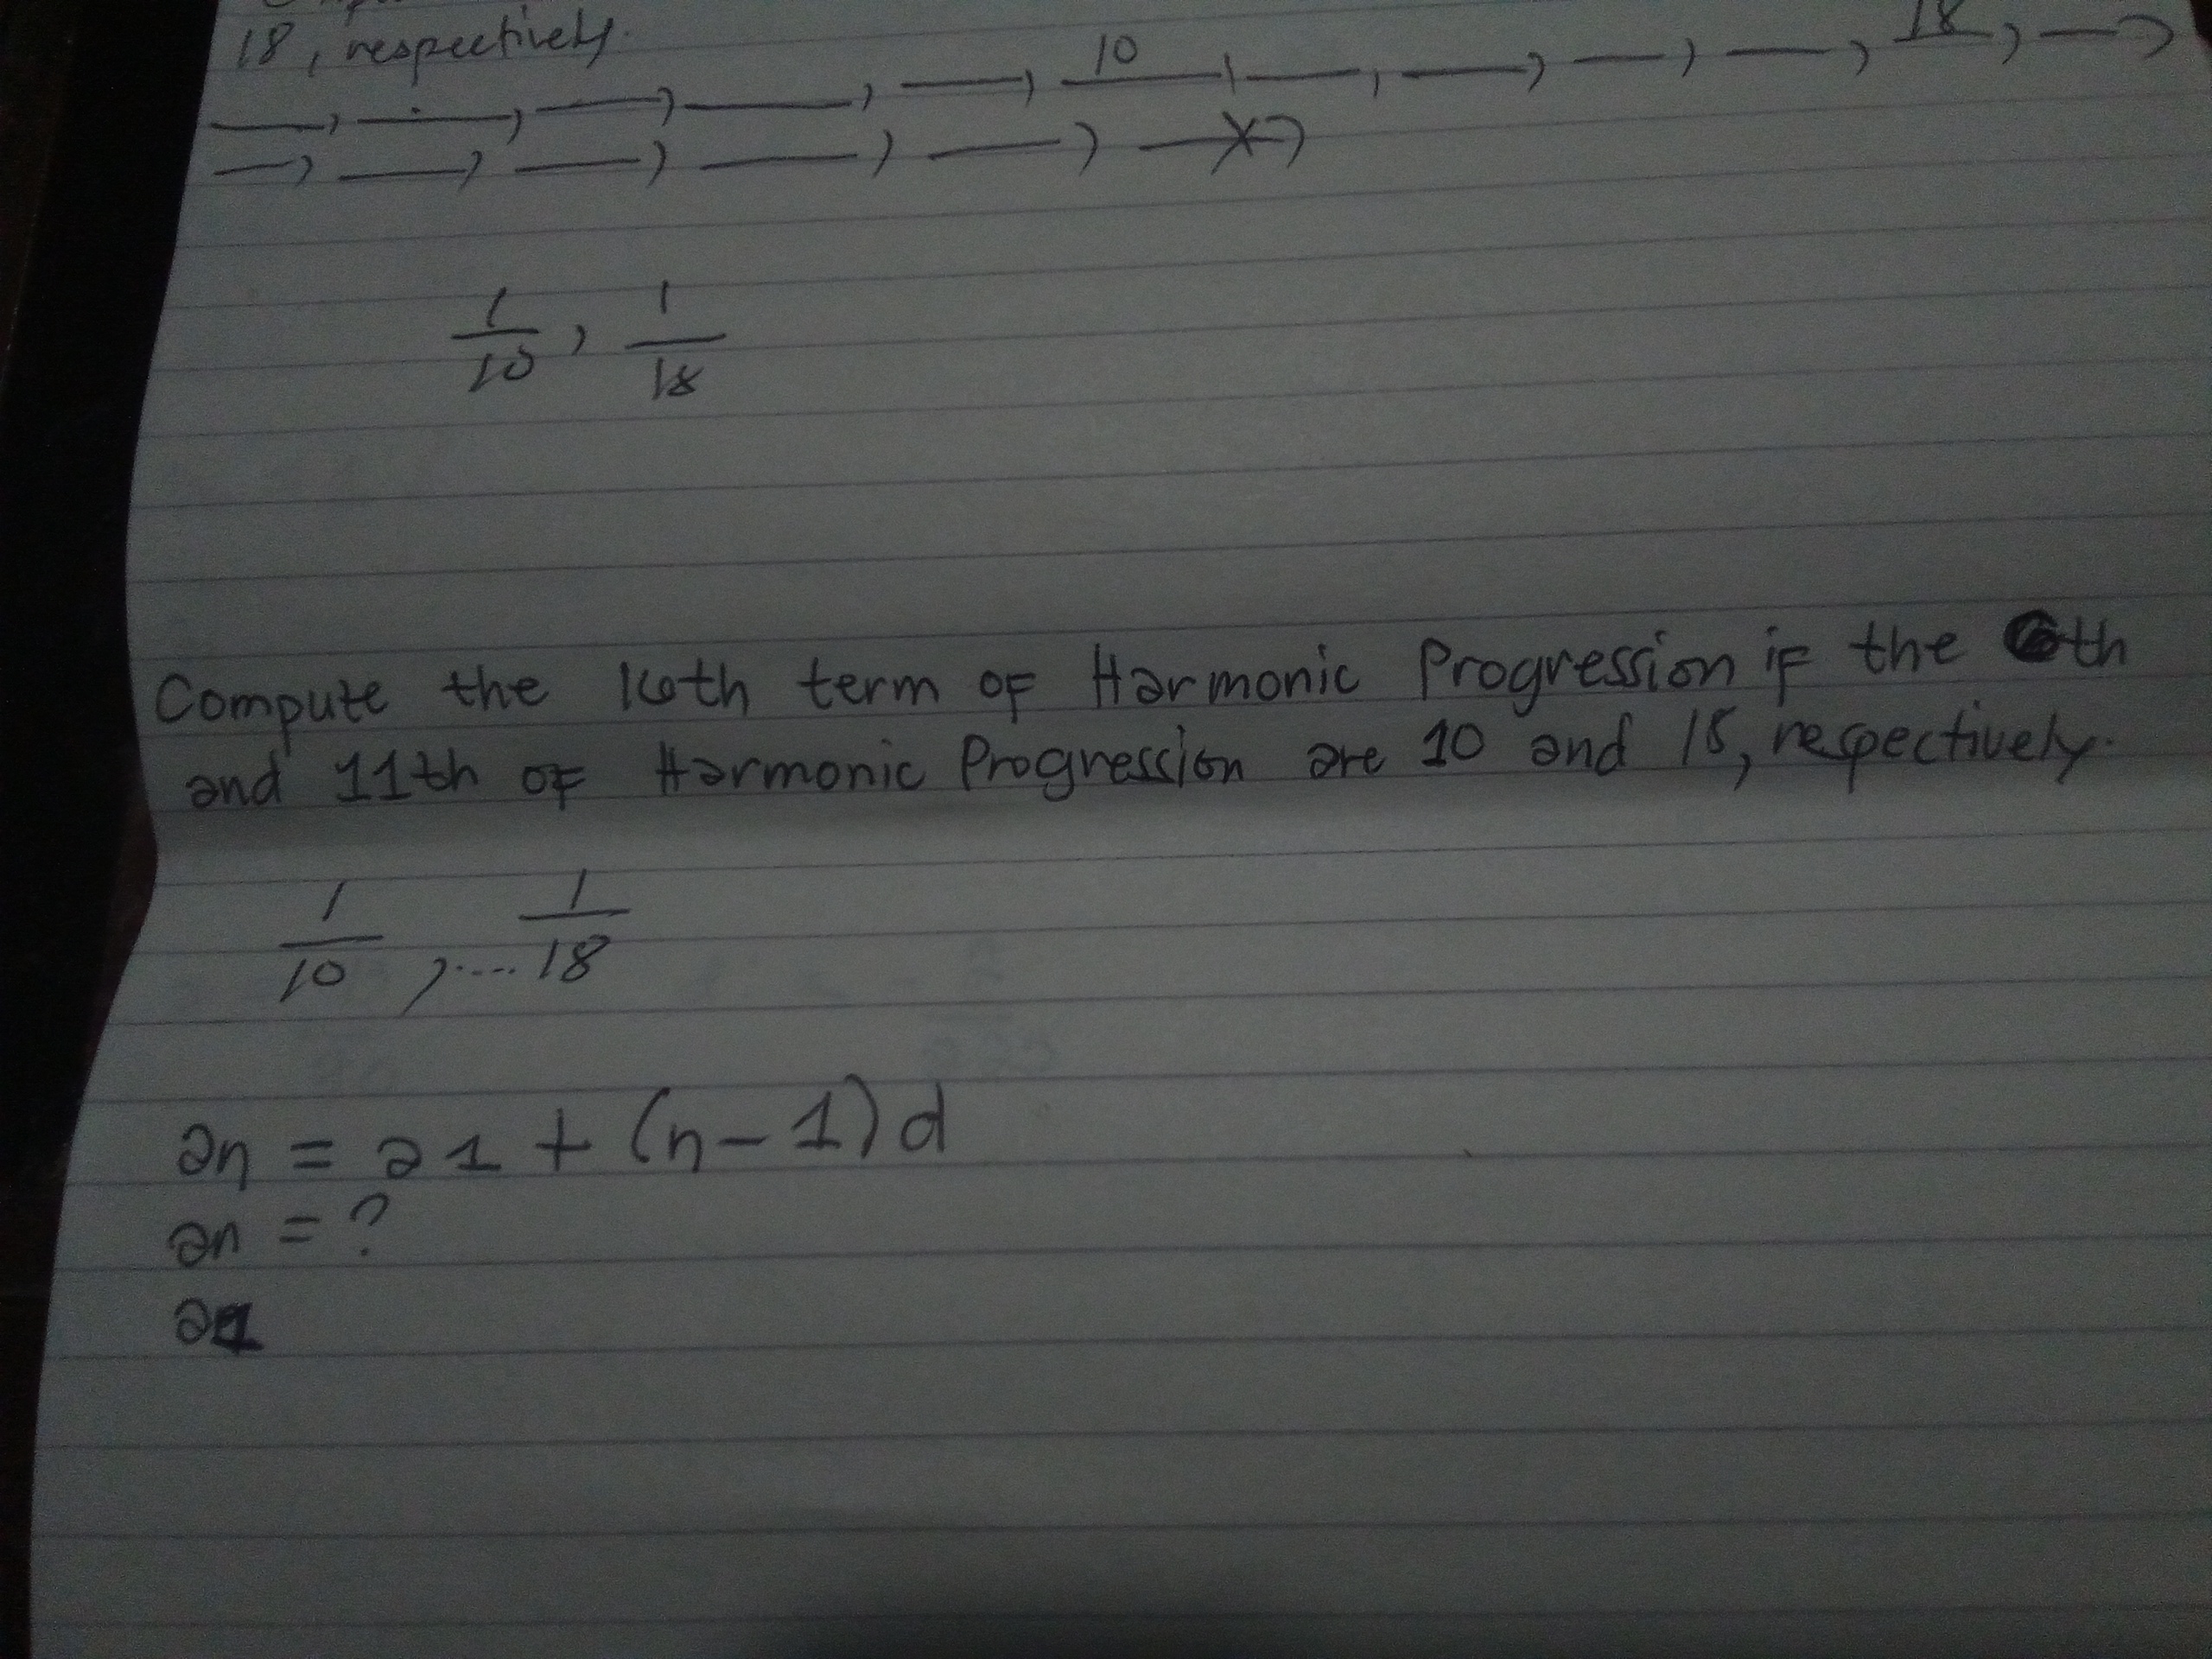 18, respectively.
__, __, __, __, __, 10, __, __, __, __, 18, __,
__, __, __, __, __, x,
1/10, 1/18
Compute the 16th term of Harmonic Progression if the 6th
and 11th of Harmonic Progression are 10 and 18, respectively.
1/10, .... 1/18
an = a1 + (n - 1) d
an = ?
a1